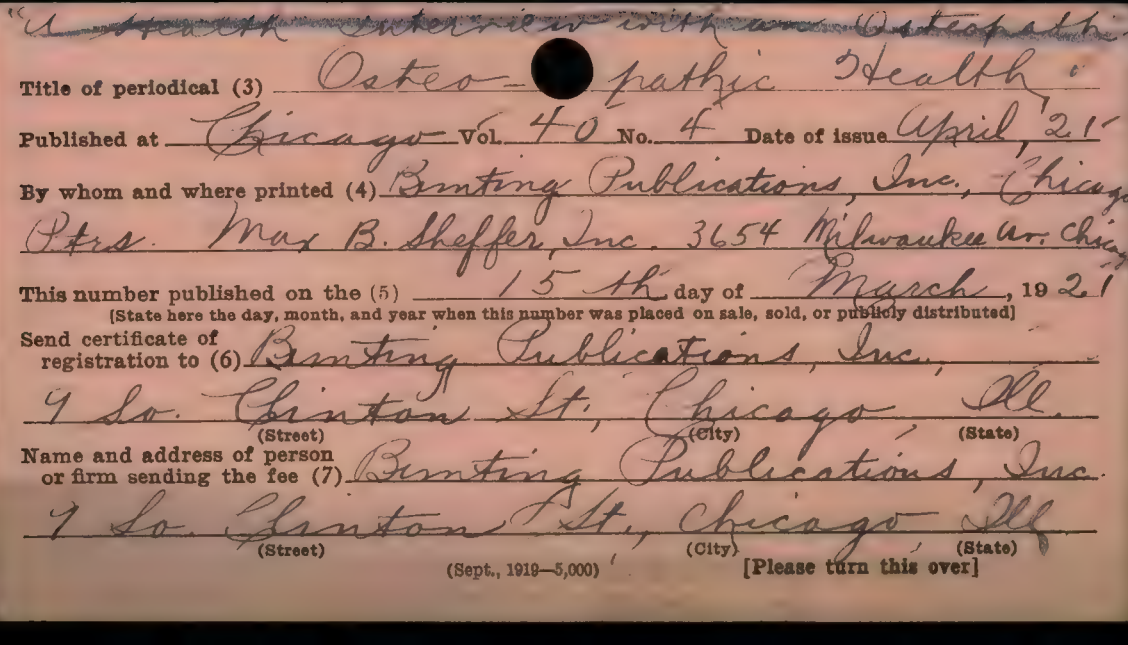 "A Health Interview with an Osteopathi
Title of periodical (3) Osteo-pathic Health,
Published at Chicago Vol. 40 No. 4 Date of issue April, 21
By whom and where printed (4) Bunting Publications, Inc., Chicago
Ptrs. Max B. Sheffer, Inc. 3654 Milwaukee Av. Chicag
This number published on the (5) 15th day of March, 1921
[State here the day, month, and year when this number was placed on sale, sold, or publicly distributed]
Send certificate of
registration to (6) Bunting Publications, Inc.,
9 So. Clinton St., Chicago, Ill.
(Street) (City) (State)
Name and address of person
or firm sending the fee (7) Bunting Publications, Inc.
9 So. Clinton St., Chicago, Ill
(Street) (City) (State)
(Sept., 1919—5,000) [Please turn this over]